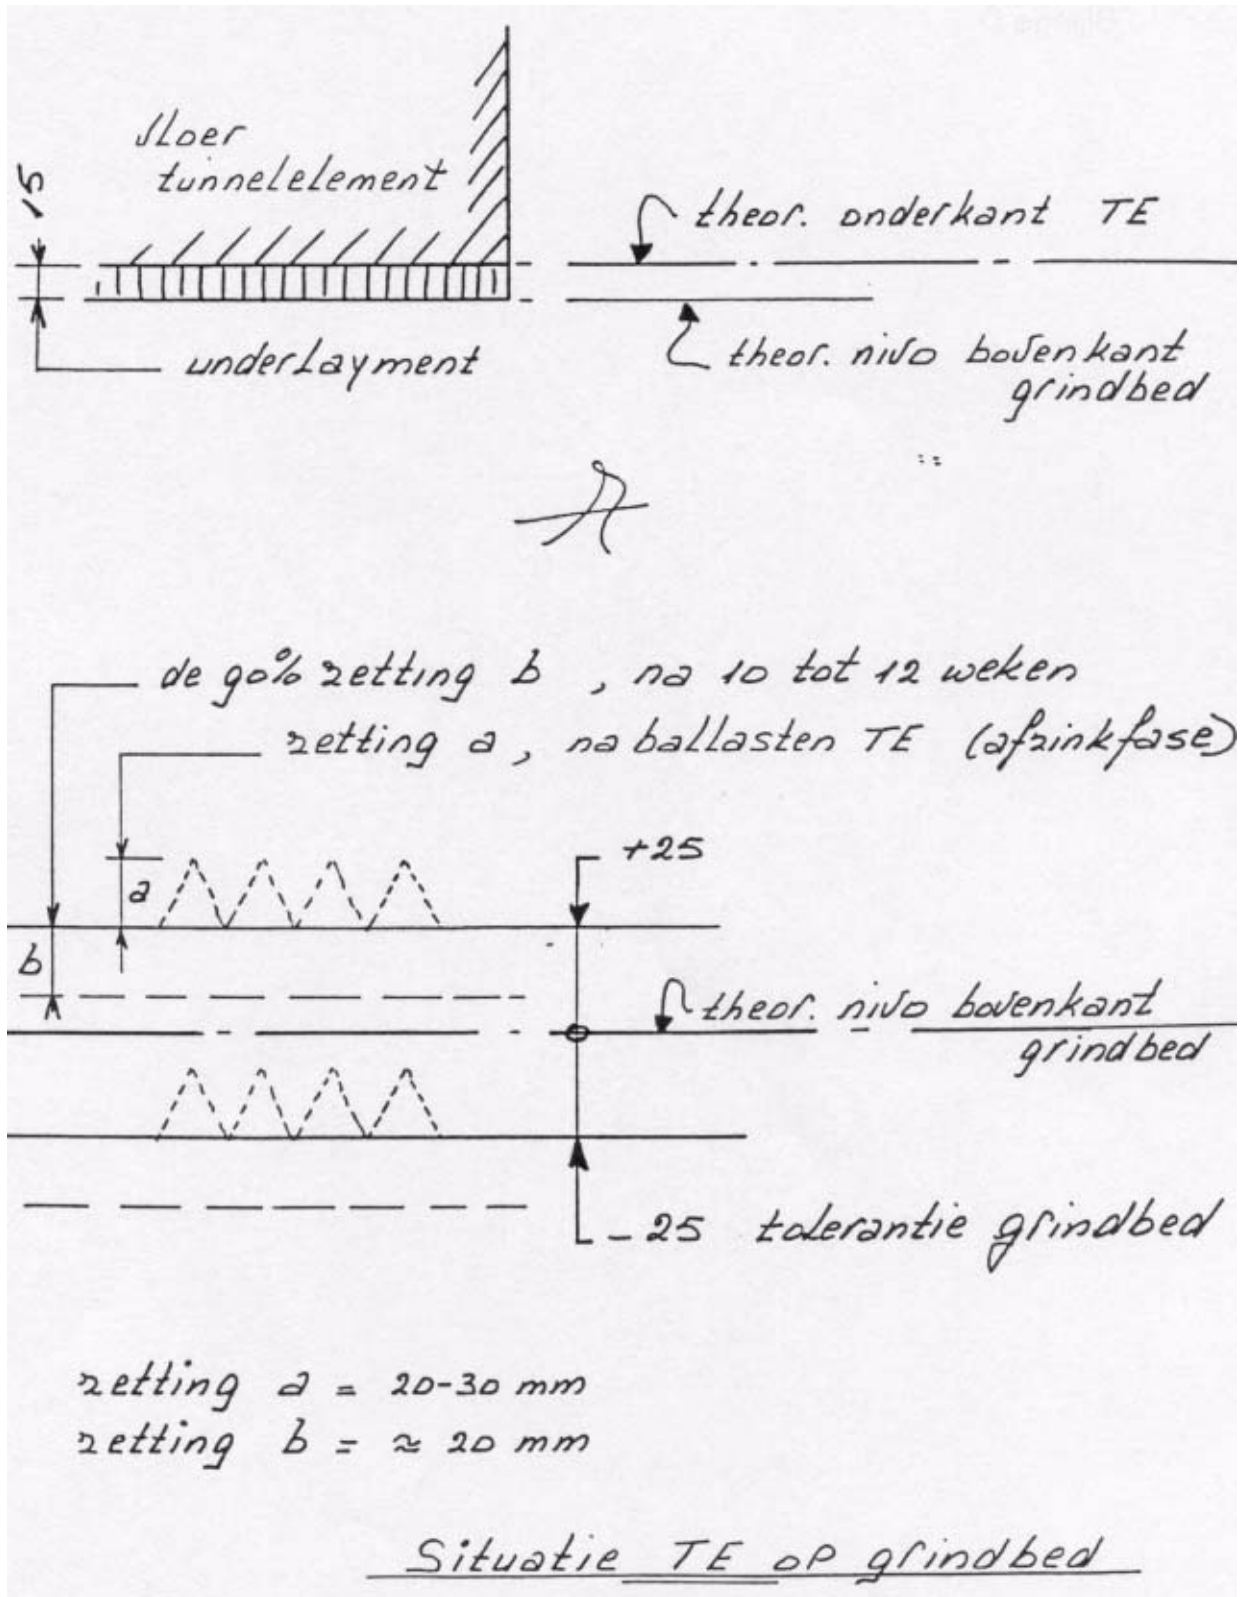 vloer
tunnelelement
15
theor. onderkant TE
theor. nivo bovenkant
grindbed
underlayment
de 90% zetting b , na 10 tot 12 weken
zetting a , na ballasten TE (afzinkfase)
+25
a
b
theor. nivo bovenkant
grindbed
-25 tolerantie grindbed
zetting a = 20-30 mm
zetting b = ≈ 20 mm
Situatie TE op grindbed